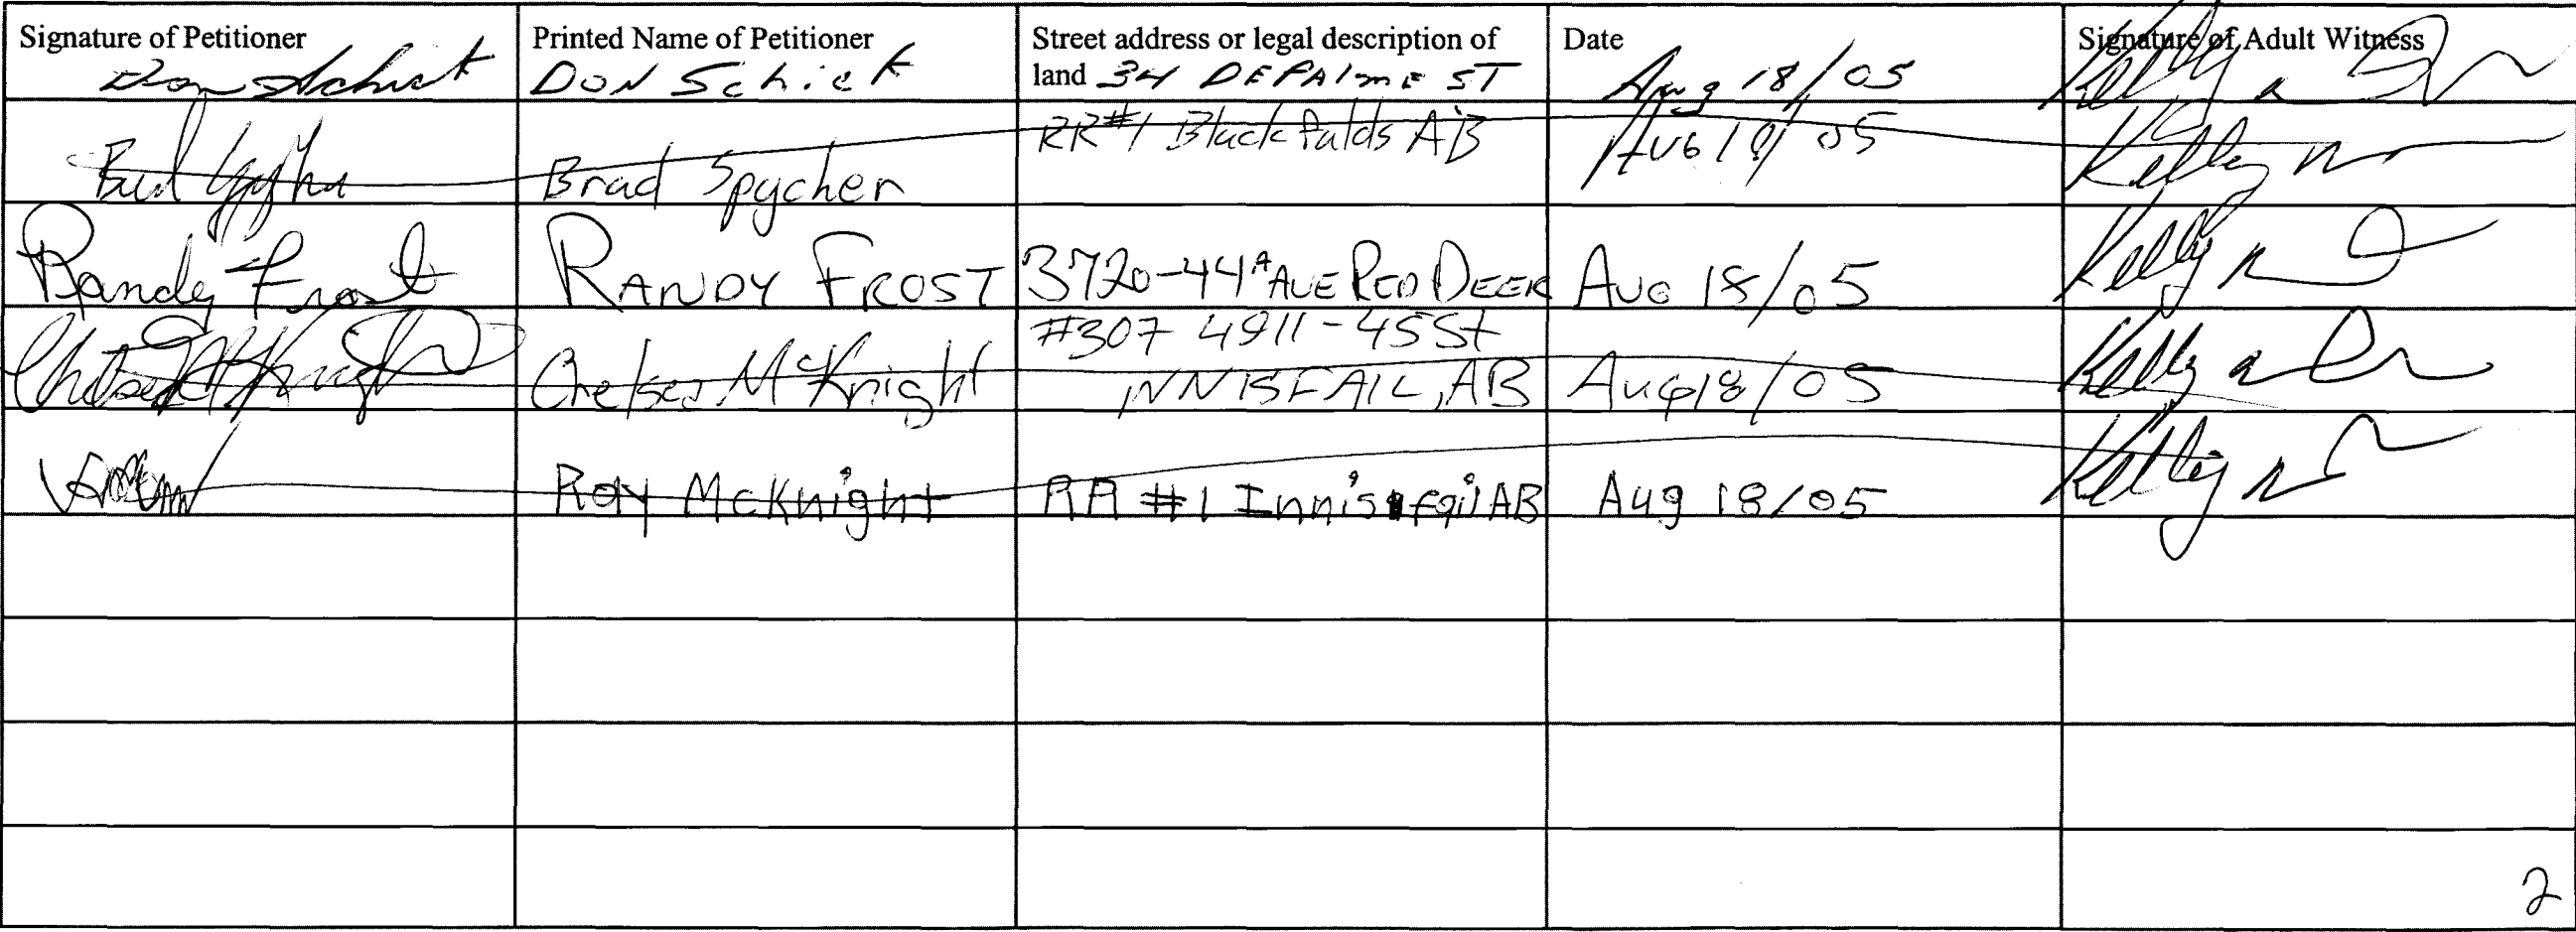 Signature of Petitioner Printed Name of Petitioner Street address or legal description of Date Signature of Adult Witness
Don Schick DON Schick land 34 DEPALME ST Aug 18/05 Kelly
Brad Spycher RR#1 Blackfalds AB Aug 18/05 Kelly
Randy Frost RANDY FROST 3720-44A AVE RED DEER AUG 18/05 Kelly
#307 4911-45St
Chelsea McKnight Chelsea McKnight INNISFAIL, AB Aug 18/05 Kelly
Roy McKnight RR #1 Innisfail AB Aug 18/05 Kelly
2